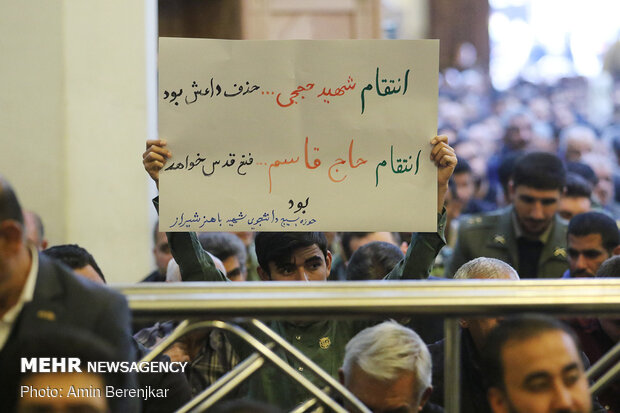 انتقام شهید حججی... حذف داعش بود
انتقام حاج قاسم... فتح قدس خواهد
بود
حوزه بسیج دانشجویی شهید باهنر شیراز
MEHR NEWS AGENCY
Photo: Amin Berenjkar
MEHR NEWSAGENCY